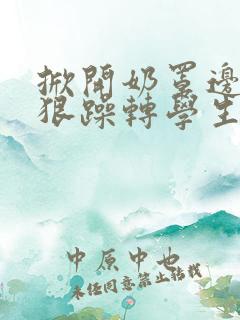 掀開奶罩邊
狠躁轉學生
中原中也
未经同意禁止转载